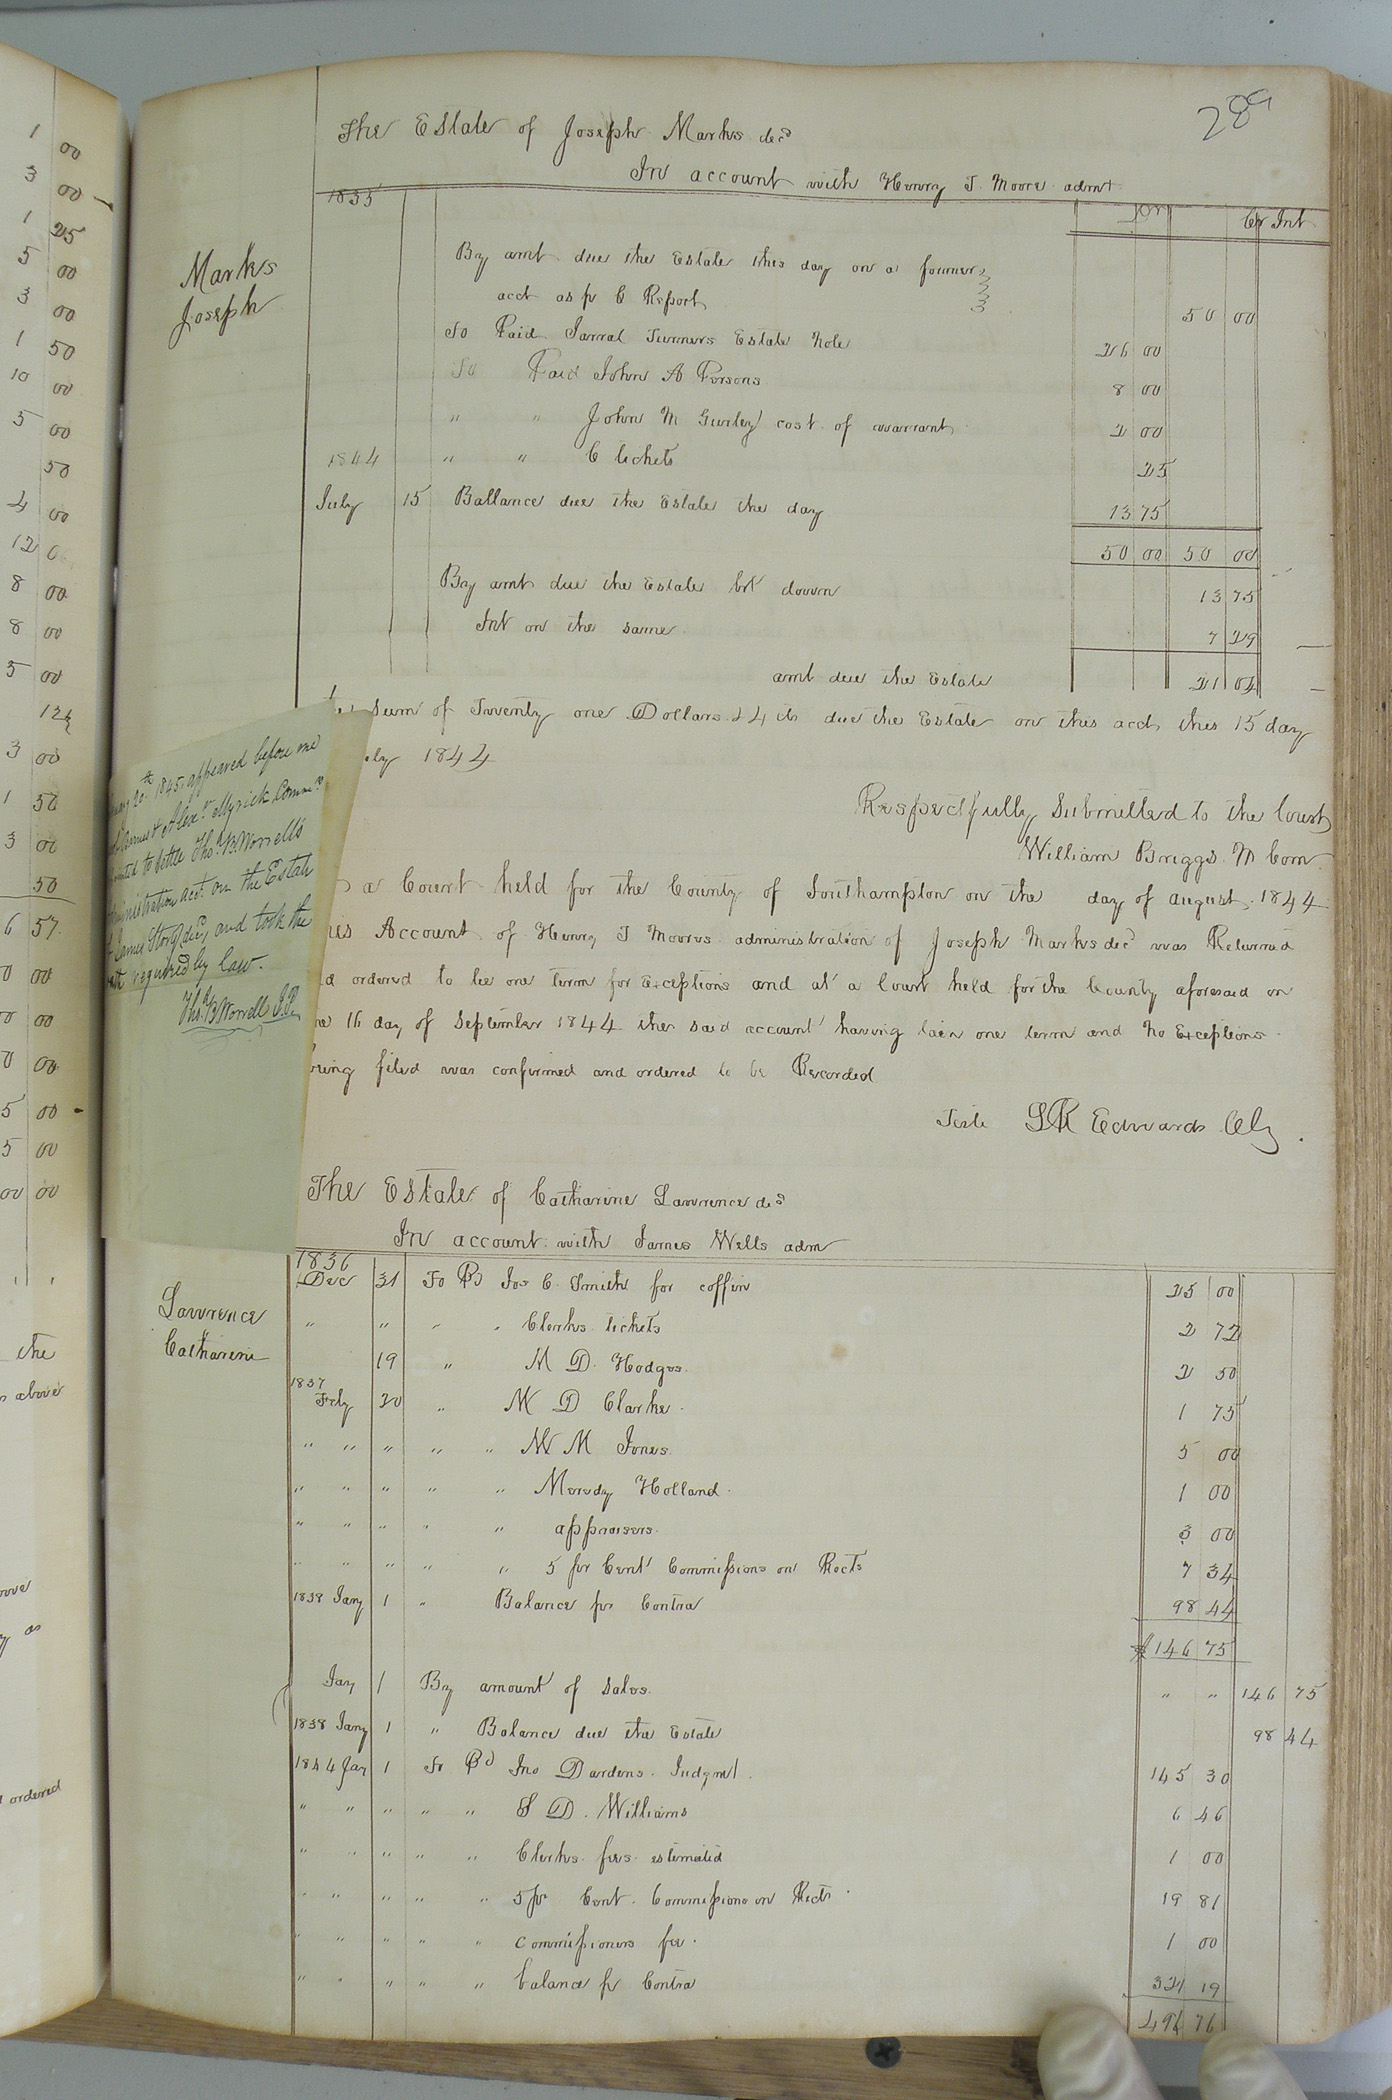 289
The Estate of Joseph Marks decd
In account with Henry J. Moore admr
1835
Dr Cr Int
Marks
Joseph
By amt due the Estate this day on a former
acct as pr C Report 50 00
To Paid Jarral Turners Estate Note 26 00
To Paid John A Persons 8 00
" " John M Gurley cost of warrant 2 00
1844 " " C tickets 25
July 15 Ballance due the Estate the day 13 75
50 00 50 00
By amt due the Estate brt down 13 75
Int on the same 7 29
amt due the Estate 21 04
the Sum of Twenty one Dollars 24 cts due the Estate on this acct, this 15 day
uly 1844
Respectfully Submitted to the Court
William Briggs M Com
a Court held for the County of Southampton on the day of august 1844
his Account of Henry J Moores administration of Joseph Marks decd was Returned
d ordered to lie one term for Exceptions and at a Court held for the County aforesaid on
he 16 day of September 1844 the said account having lain one term and No Exceptions
being filed was confirmed and ordered to be Recorded
Teste LR Edwards Clk
20th 1845, appeared before me
Alexr Myrick Commr
to settle Thos B. Worrell's
ministration acct on the Estate
James Story decd, and took the
required by law.
Thos B Worrell J.P.
The Estate of Catharine Lawrence decd
In account with James Wells adm
Lawrence
Catharine
1836
Dec 31 To Pd Jos C. Smith for coffin 25 00
" " " " Clerks tickets 2 72
19 " M D. Hodges 2 50
1837
Feby 20 " M D Clarke 1 75
" " " " " M M Jones 5 00
" " " " " Meredy Holland 1 00
" " " " " appraisers 3 00
" " " " " 5 pr Cent Commissions on Rects 7 34
1838 Jany 1 " Balance pr Contra 98 44
$146 75
Jay 1 By amount of Sales " " 146 75
1838 Jany 1 " Balance due the Estate 98 44
1844 Jay 1 To Pd Jno Dardens Judgmt 145 30
" " " " " S D. Williams 6 46
" " " " " Clerks fees estimated 1 00
" " " " " 5 pr Cent. Commissions on Rects 19 81
" " " " " Commissioners fee 1 00
" " " " " balance pr Contra 322 19
496 76
1 00
3 00
1 25
5 00
3 00
1 50
10 00
5 00
50
4 00
12 0
8 00
8 00
5 00
12½
3 00
1 50
3 00
50
6 57
0 00
0 00
0 00
5 00
5 00
00 00
the
above
as
ordered